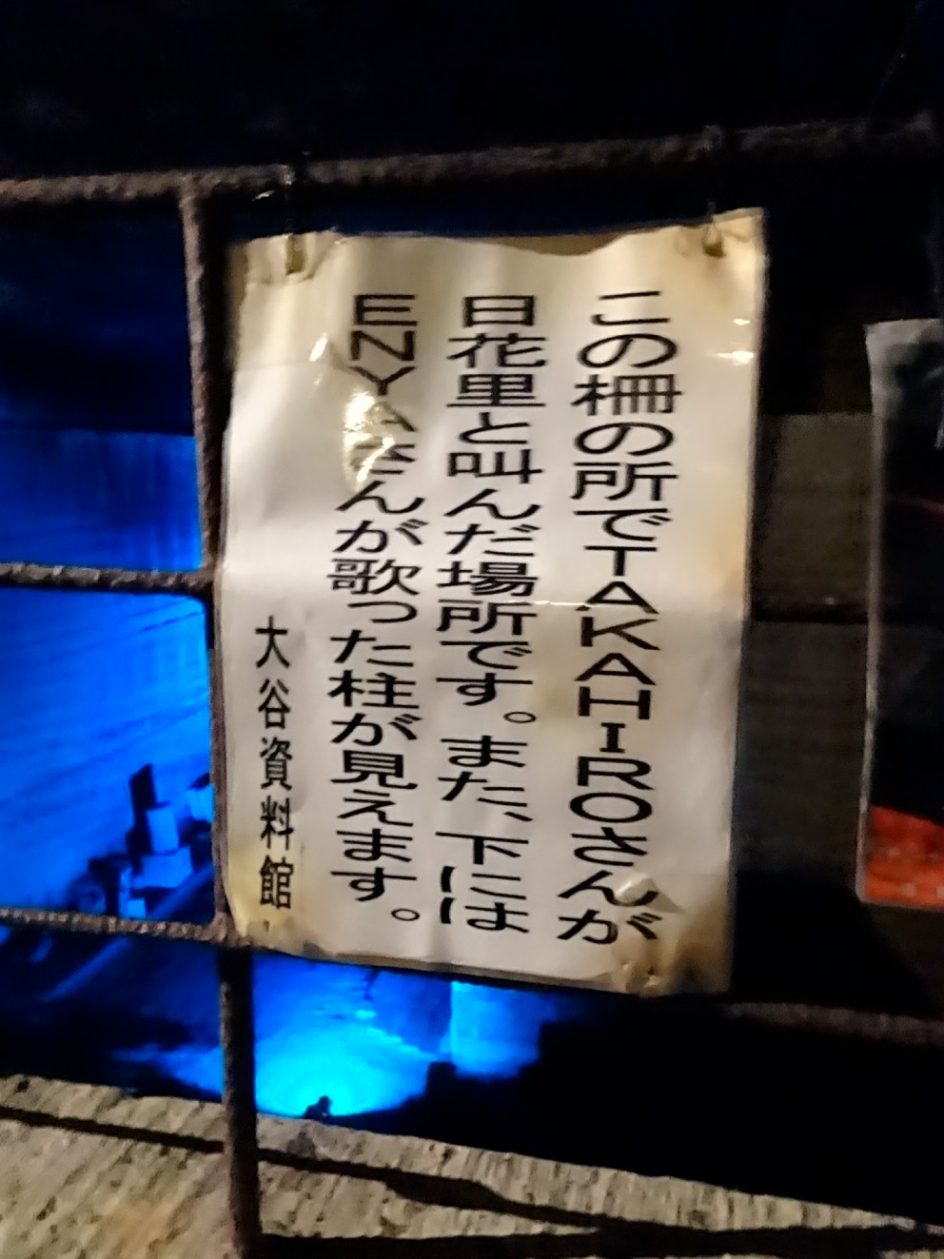 この柵の所でTAKAHIROさんが
日花里と叫んだ場所です。また、下には
ENYAさんが歌った柱が見えます。
大谷資料館